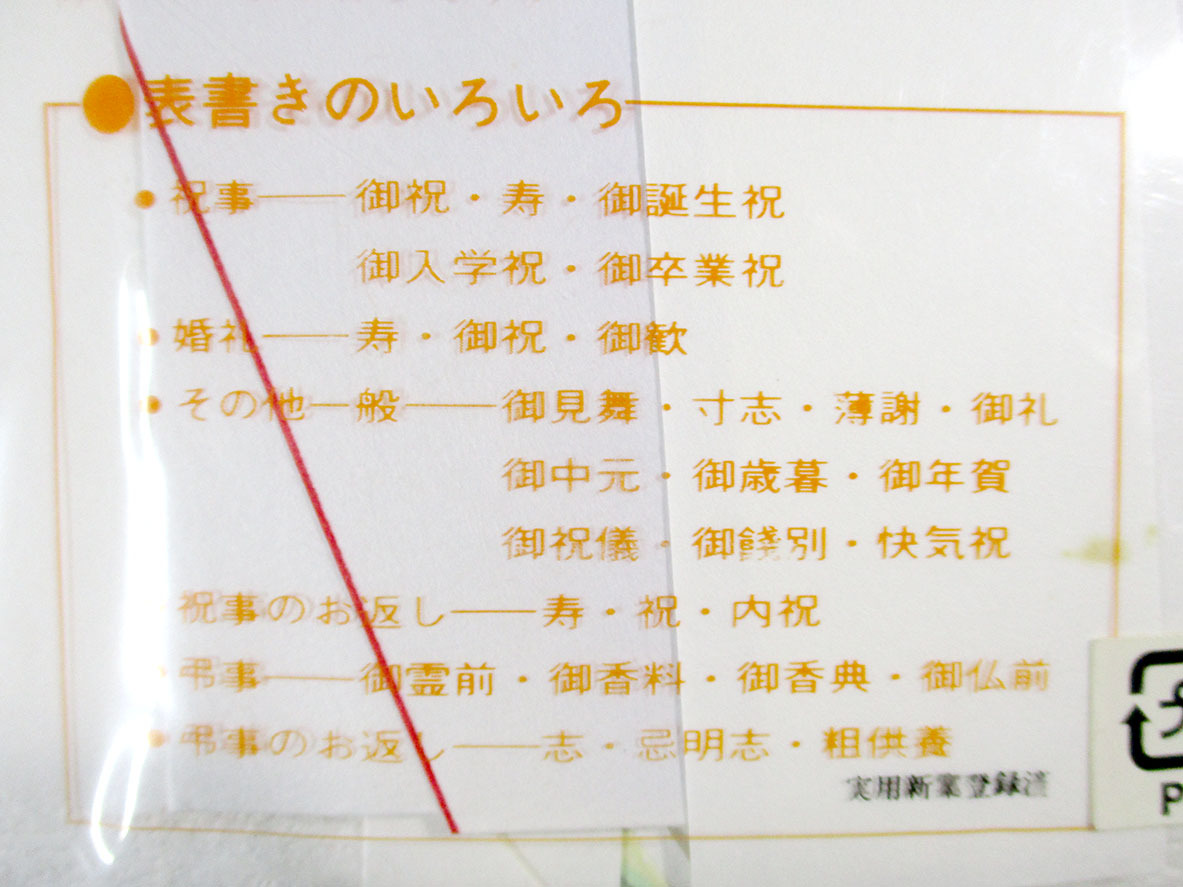 ●表書きのいろいろ
•祝事――御祝・寿・御誕生祝
御入学祝・御卒業祝
•婚礼――寿・御祝・御歓
•その他一般――御見舞・寸志・薄謝・御礼
御中元・御歳暮・御年賀
御祝儀・御餞別・快気祝
祝事のお返し――寿・祝・内祝
•弔事――御霊前・御香料・御香典・御仏前
•弔事のお返し――志・忌明志・粗供養
実用新案登録済
プ
P